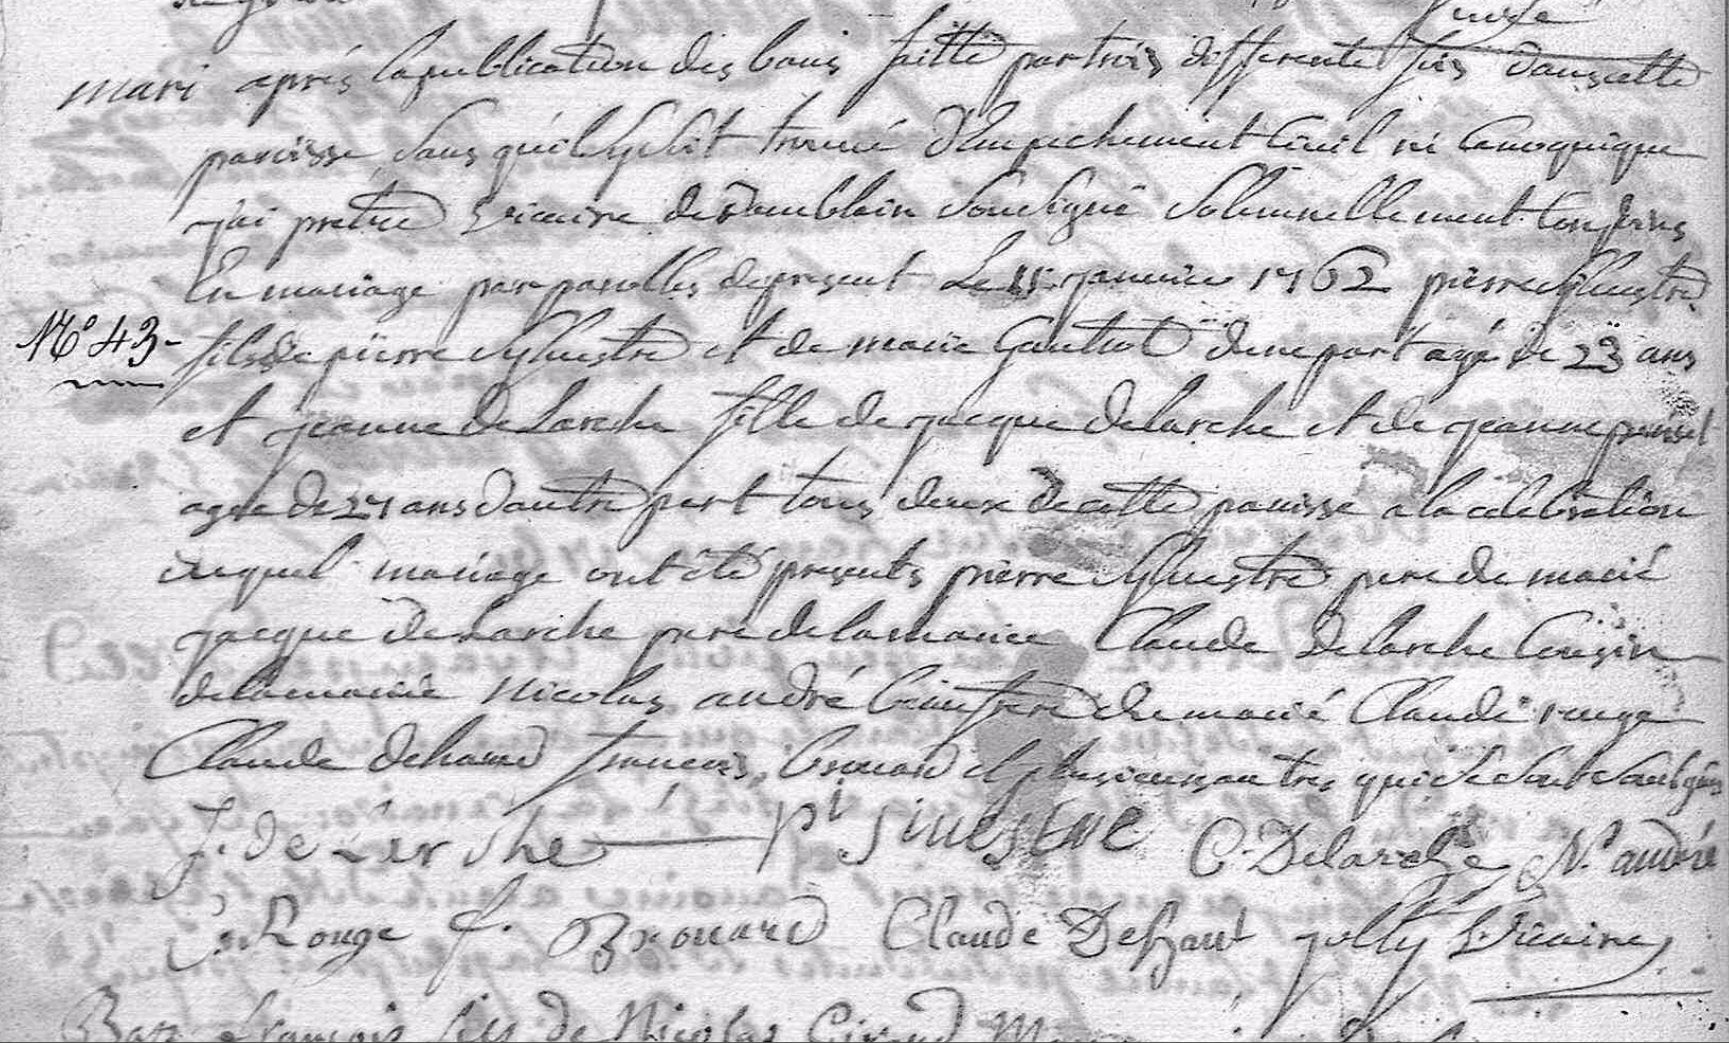 mari après la publication des bans faitte par trois differente fois dans cette
paroisse sans quil sy soit trouvé d'Empechement Civil ni Canoquique
j'ai prêtre vicaire de soussigné solemnellement conjoins
En mariage par parolles de present Le janvier 1762 pierre sylvestre
N° 43 - fils de pierre sylvestre et de marie Gautrot d'une part agé de 23 ans
et jeanne De Larche fille de jacque delarche et de jeanne
agée de 27 ans d'autre part tous deux de cette paroisse a la celebration
duquel mariage ont été presents pierre sylvestre pere de marié
jacque de Larche pere de la mariée Claude De larche Cousin
de la mariée nicolas andré beaufrere du marié Claude rouge
Claude dehaut francois brouard et plusieurs autres qui se sont soussignés
J. de Larche pi silvestre C. Delarche N. andré
C. Rouge f. Brouard Claude DeHaut jolly Vicaire
Bap francois fils de Nicolas